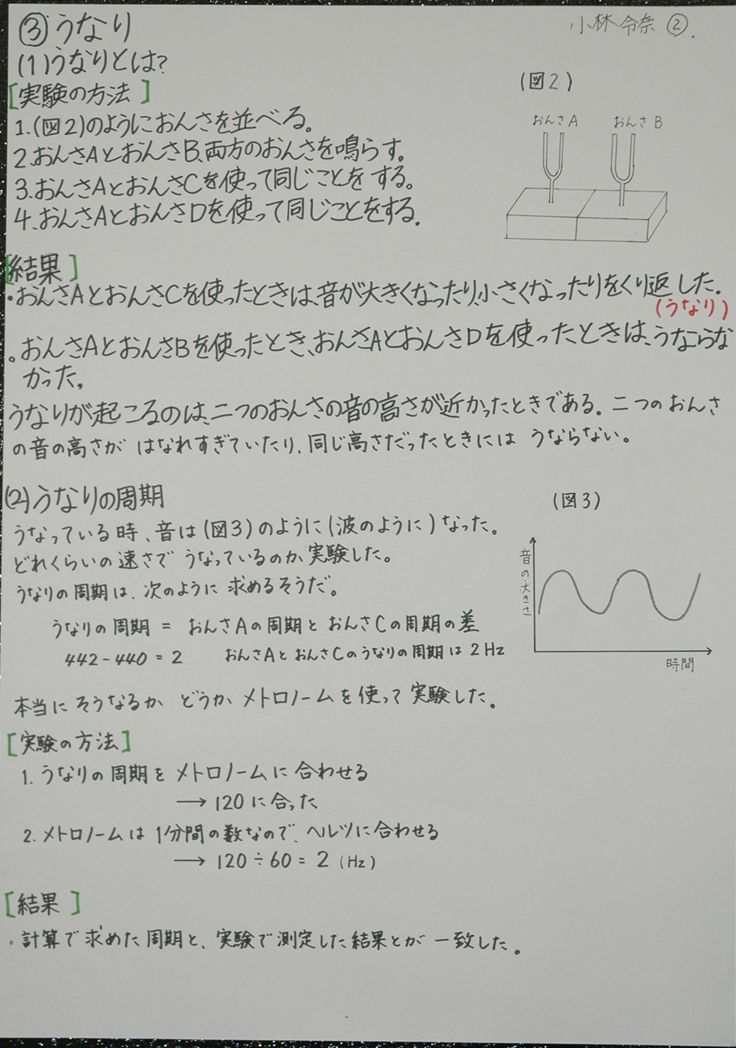 ③うなり
小林令奈 ②.
(1)うなりとは?
[実験の方法]
1.(図2)のようにおんさを並べる。
2.おんさAとおんさB、両方のおんさを鳴らす。
3.おんさAとおんさCを使って同じことをする。
4.おんさAとおんさDを使って同じことをする.
(図2)
おんさA おんさB
[結果]
・おんさAとおんさCを使ったときは、音が大きくなったり、小さくなったりをくり返した.
(うなり)
。おんさAとおんさBを使ったとき、おんさAとおんさDを使ったときは、うならな
かった。
うなりが起こるのは、二つのおんさの音の高さが近かったときである。二つのおんさ
の音の高さが はなれすぎていたり、同じ高さだったときには うならない。
(2)うなりの周期
うなっている時、音は(図3)のように(波のように)なった。
どれくらいの速さで うなっているのか、実験した。
うなりの周期は、次のように 求めるそうだ。
うなりの周期 = おんさAの周期とおんさCの周期の差
442-440=2 おんさAとおんさCのうなりの周期は2Hz
(図3)
音の大きさ
時間
本当に そうなるか どうか、メトロノームを使って 実験した。
[実験の方法]
1. うなりの周期を メトロノームに 合わせる
→ 120に合った
2. メトロノームは 1分間の数なので、ヘルツに合わせる
→ 120÷60=2(Hz)
[結果]
・計算で求めた周期と、実験で測定した結果とが 一致した。